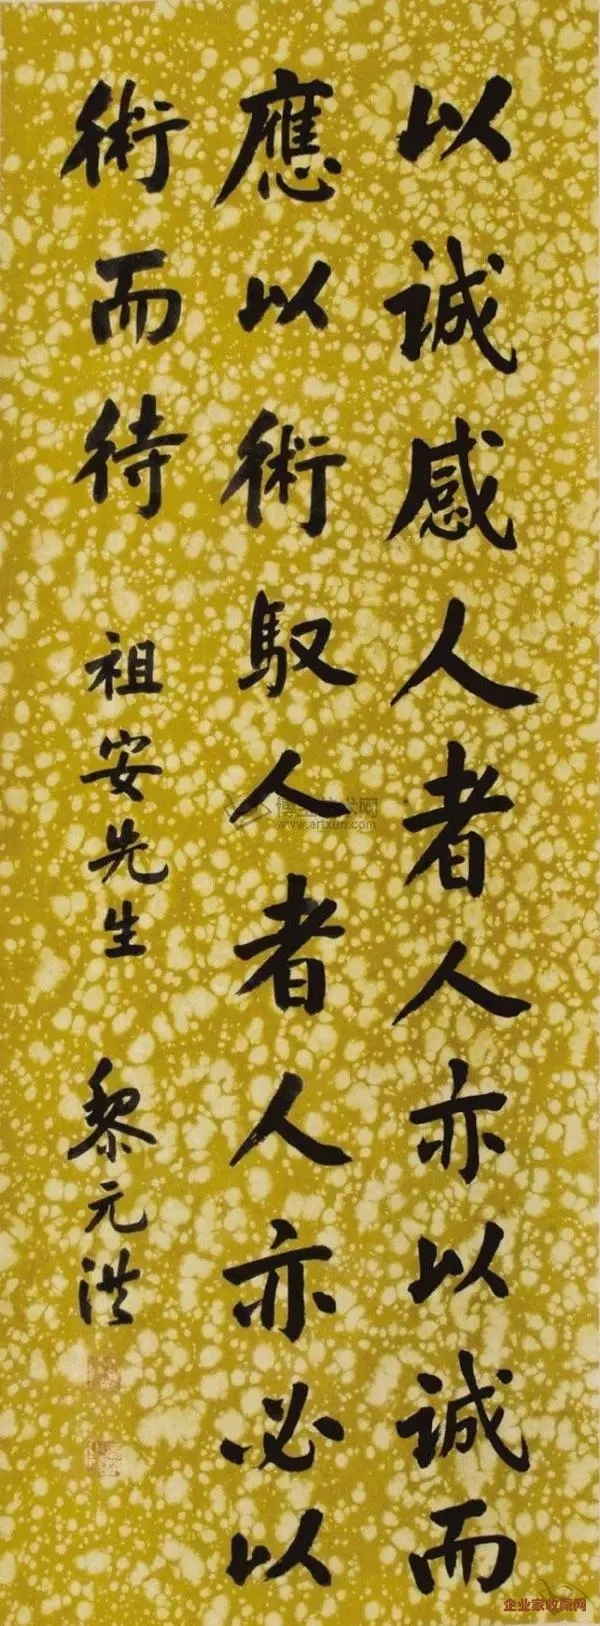 以誠感人者人亦以誠而
應以術馭人者人亦必以
術而待
祖安先生
黎元洪
www.artxun.com
企业家收藏网